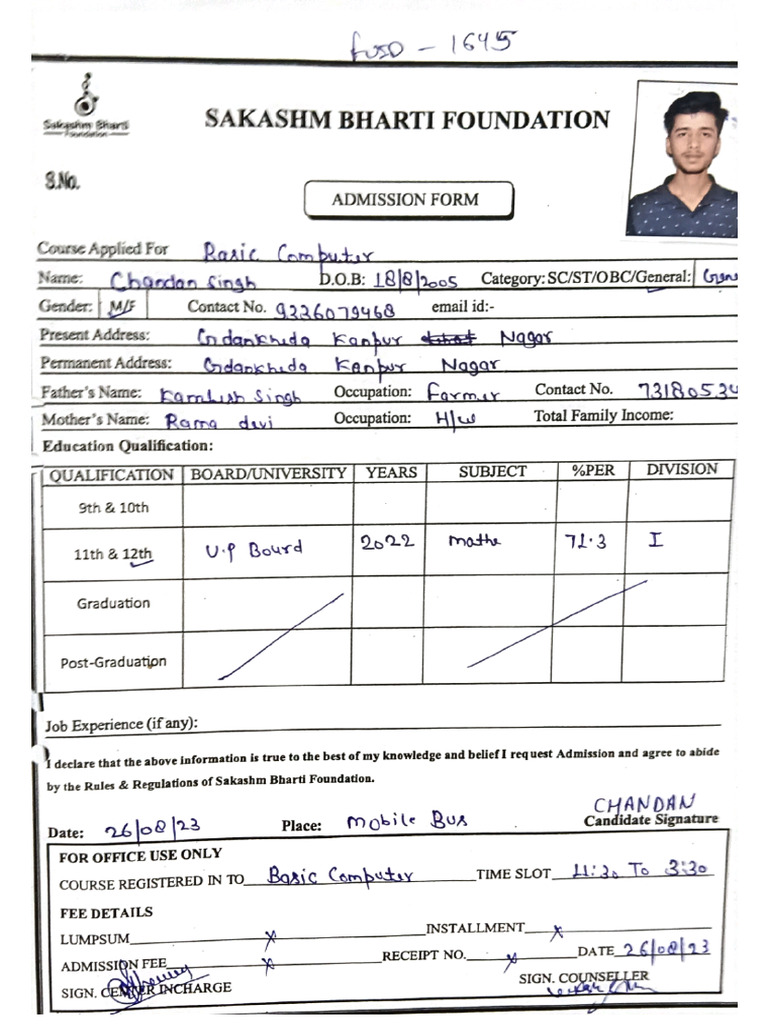 FUSD - 1645
Sakashm Bharti
Foundation
SAKASHM BHARTI FOUNDATION
S.No.
ADMISSION FORM
Course Applied For Basic Computer
Name: Chandan Singh D.O.B: 18/8/2005 Category: SC/ST/OBC/General: Gene
Gender: M/F Contact No. 9336079468 email id:-
Present Address: Kanpur Nagar
Permanent Address: Kanpur Nagar
Father's Name: Kamlesh Singh Occupation: Farmer Contact No. 73180534
Mother's Name: Rama devi Occupation: H/w Total Family Income:
Education Qualification:
QUALIFICATION BOARD/UNIVERSITY YEARS SUBJECT %PER DIVISION
9th & 10th
11th & 12th U.P Bourd 2022 mathe 71.3 I
Graduation
Post-Graduation
Job Experience (if any):
I declare that the above information is true to the best of my knowledge and belief I request Admission and agree to abide
by the Rules & Regulations of Sakashm Bharti Foundation.
CHANDAN
Date: 26/08/23 Place: Mobile Bus Candidate Signature
FOR OFFICE USE ONLY
COURSE REGISTERED IN TO Basic Computer TIME SLOT 11:30 To 3:30
FEE DETAILS
LUMPSUM x INSTALLMENT x
ADMISSION FEE x RECEIPT NO. x DATE 26/08/23
SIGN. CENTER INCHARGE SIGN. COUNSELLER